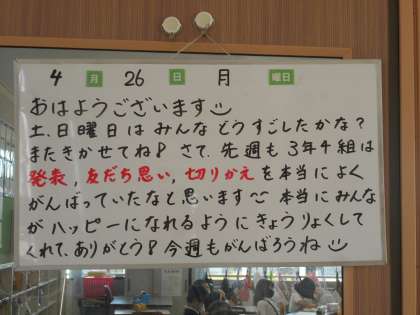 4月26日月曜日
おはようございます
土、日曜日はみんなどうすごしたかな？
またきかせてね! さて、先週も3年4組は
発表，友だち思い，切りかえを本当によく
がんばっていたなと思います 本当にみんな
がハッピーになれるようにきょうりょくして
くれて、ありがとう! 今週もがんばろうね